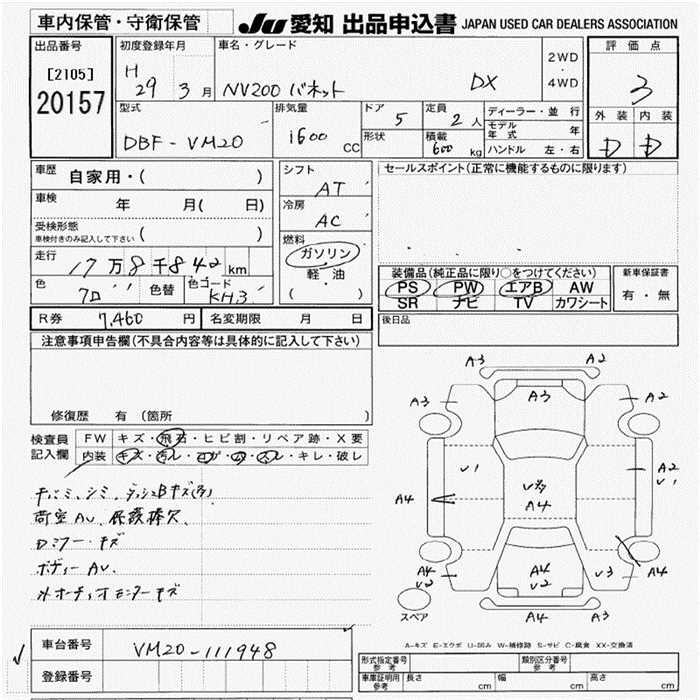 車内保管・守衛保管
JU 愛知 出品申込書 JAPAN USED CAR DEALERS ASSOCIATION
出品番号
[2105]
20157
初度登録年月
H 29 3 月
車名・グレード
NV200 バネット DX
2WD
・
4WD
評価点
3
外装 内装
D D
型式
DBF-VM20
排気量
1600 CC
ドア
5
形状
定員
2 人
積載
600 kg
ディーラー・並行
モデル年式 年
ハンドル 左・右
車歴 自家用・( )
車検 年 月( 日)
受検形態
車検付きのみ記入して下さい ( )
走行 17万8千842km
色 色替 色コード
クロ KH3
シフト
AT
冷房
AC
燃料
ガソリン
軽・油
( )
セールスポイント(正常に機能するものに限ります)
装備品(純正品に限り○をつけてください)
PS PW エアB AW
SR ナビ TV カワシート
新車保証書
有・無
R券 7,460 円 名変期限 月 日
後日品
注意事項申告欄(不具合内容等は具体的に記入して下さい)
修復歴 有 (箇所 )
検査員
記入欄
FW キズ・飛石・ヒビ割・リペア跡・X要
内装 キズ・汚レ・コゲ・穴・スレ・キレ・破レ
チバミ、シミ、ダッシュBキズ(多)
荷室AU、保護棒欠
Dミラーキズ
ボディーAU
オーディオモニターキズ
A3 A2
A3 A3 A2
V1 V多 A2
V1
A4 A4
A4
V2 A4
V2 V3 A4
A4 A3
スペア
A-キズ E-エクボ U-凹み W-補修跡 S-サビ C-腐食 XX-交換済
車台番号 VM20-111948
登録番号
形式指定番号
参考
類別区分番号
参考
車庫証明用
参考
長さ cm 幅 cm 高さ cm